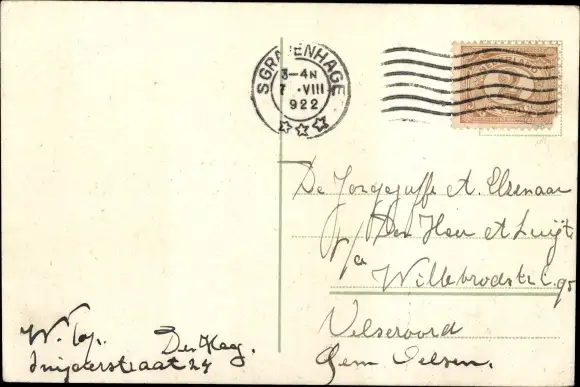 S GRAVENHAGE
3-4N
7 .VIII
922
De Jongejuffr A. Elzenaar
p/a Den Heer A Luijt
Willebrordstr
Velseroord
Gem Velsen.
W. Top. Den Haag.
straat 27